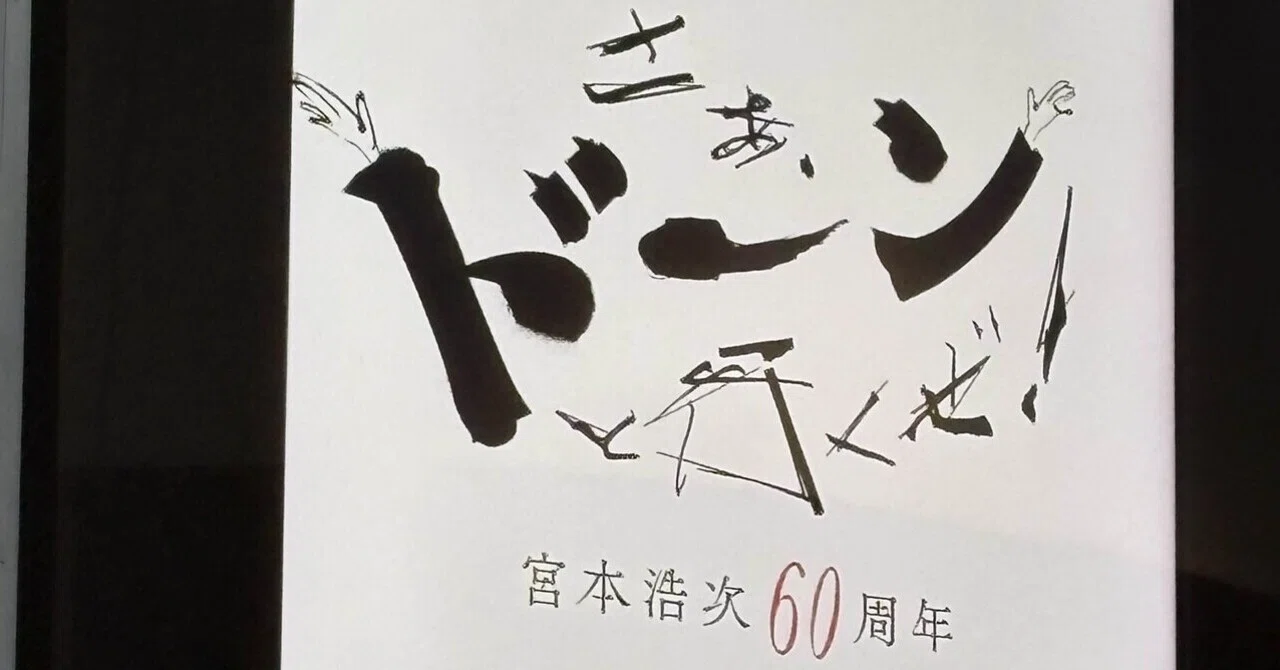 さぁ、
ドーン
と行くぜ!
宮本浩次60周年